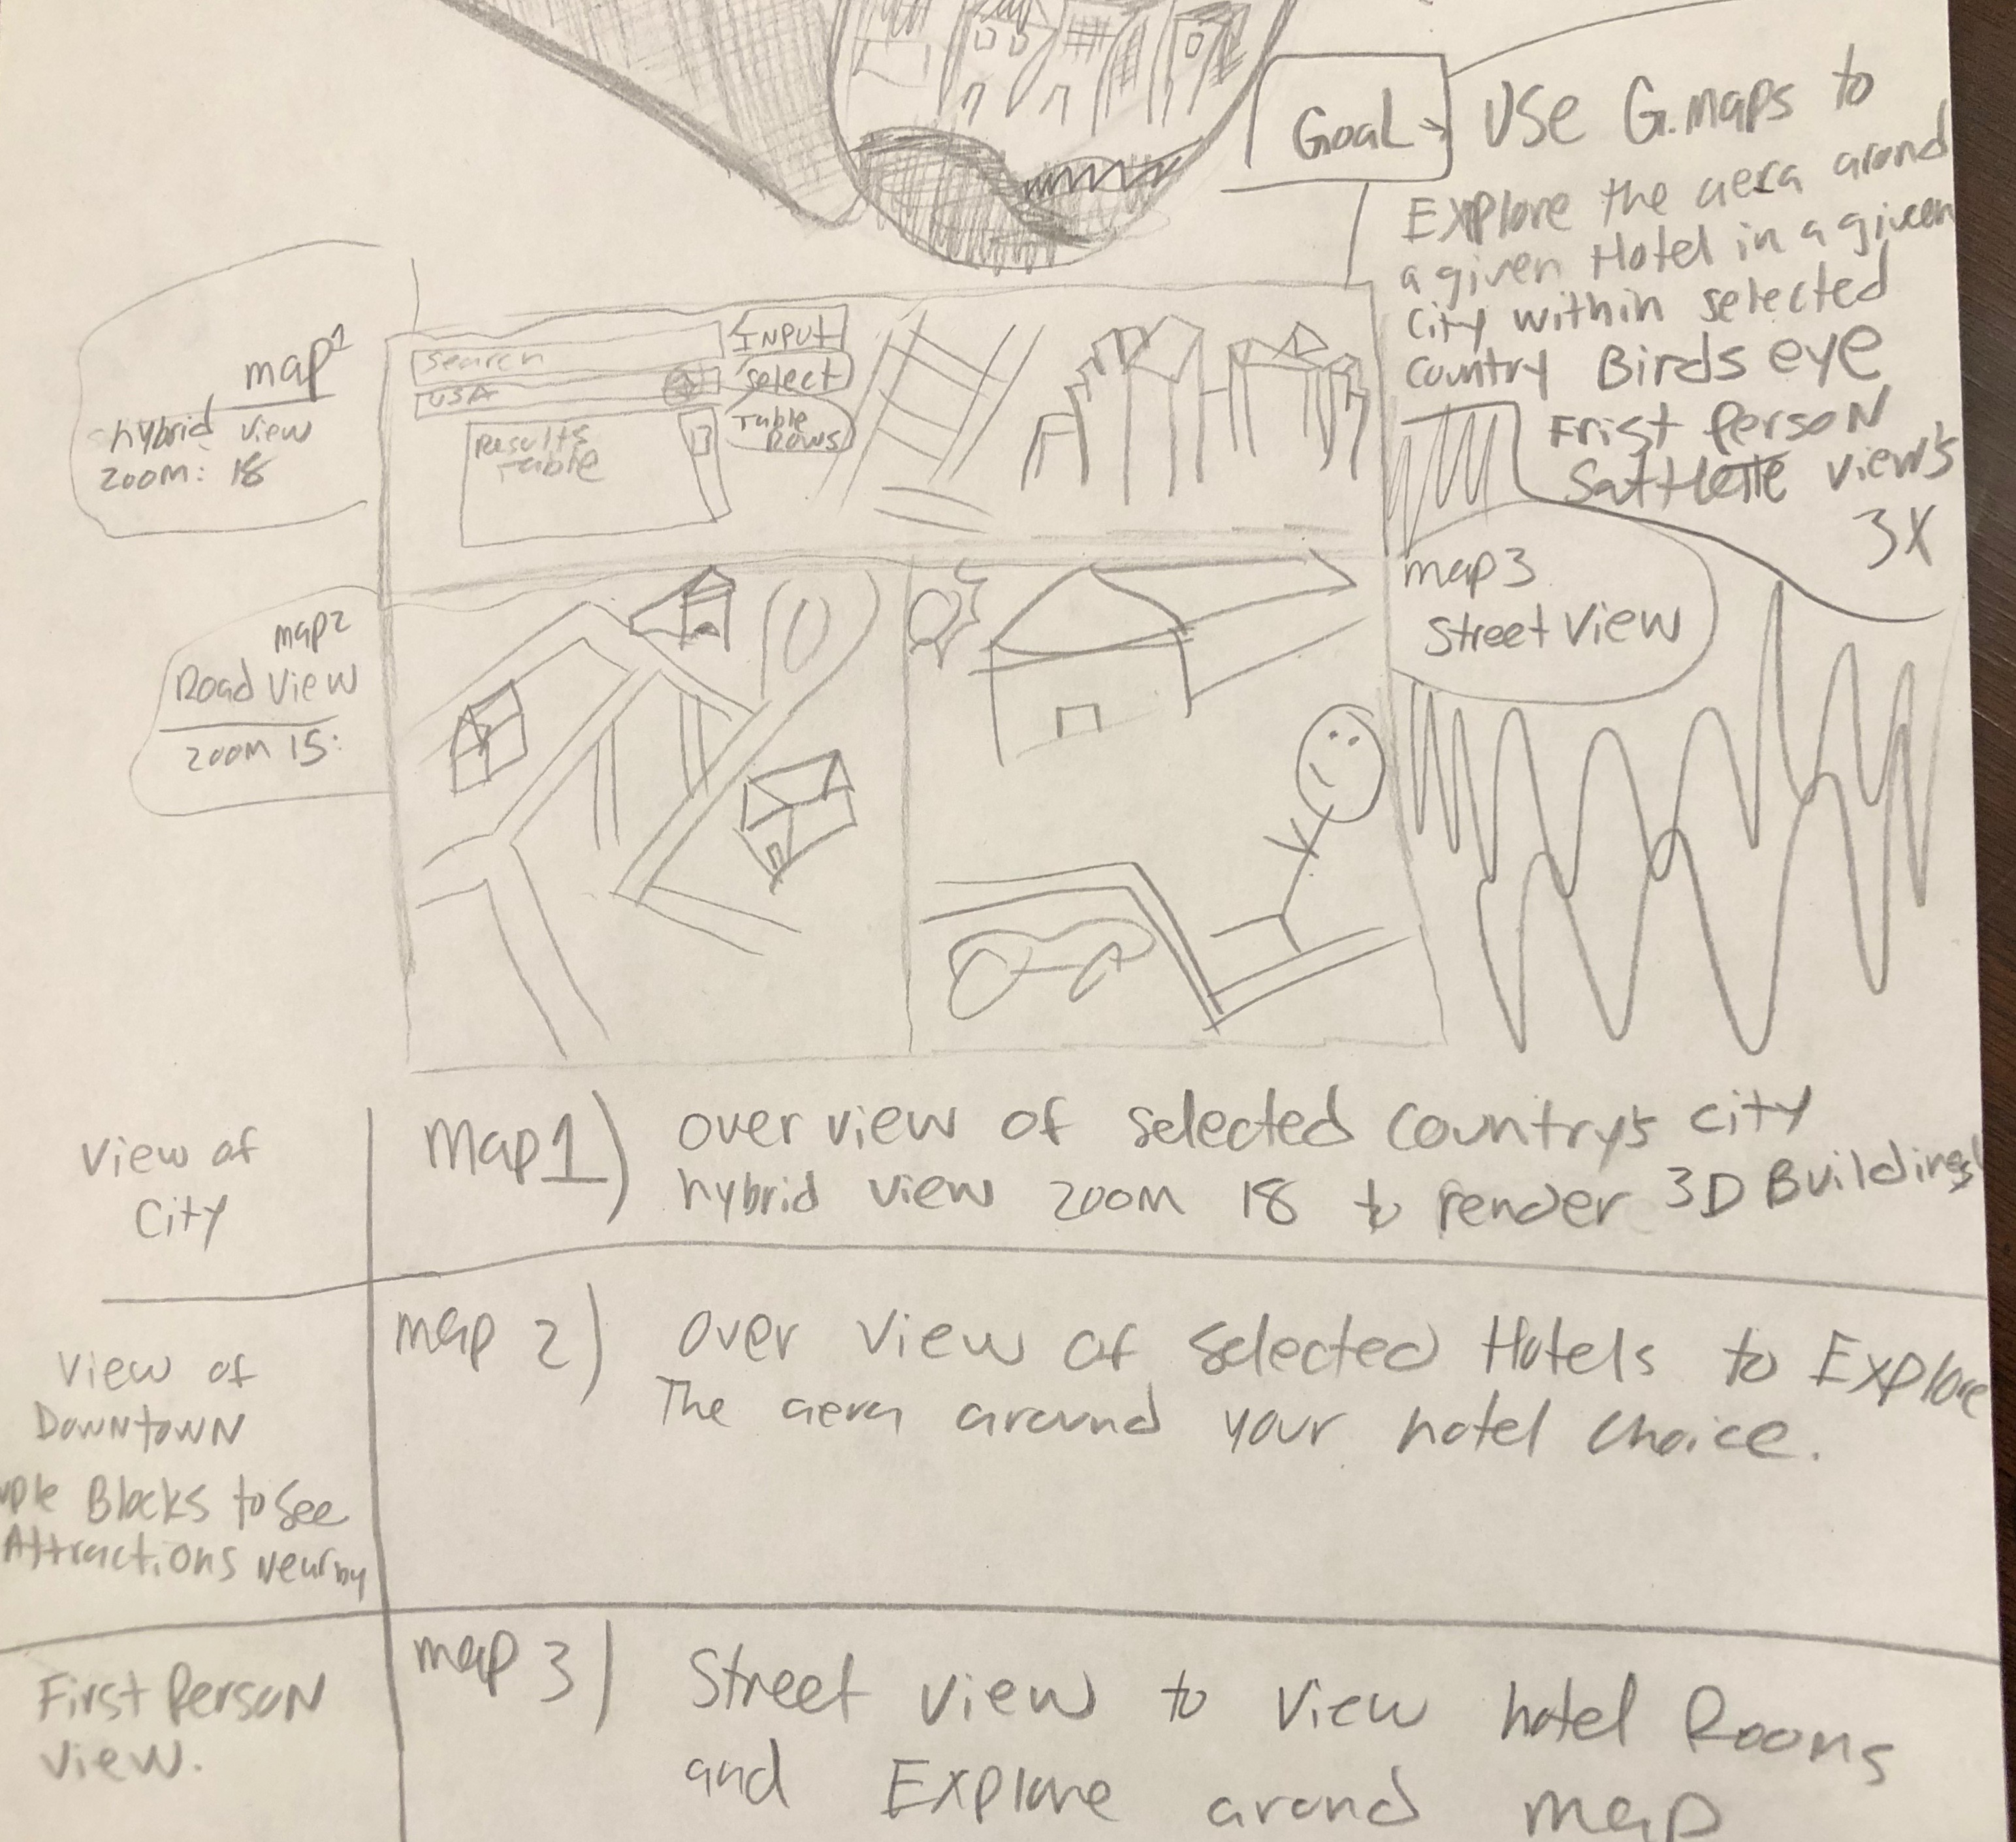 Goal
USE G.maps to
Explore the aera arond
a given Hotel in a given
City within selected
Country Birds eye
Frist Person
Sattlette views
3X
map1
hybrid view
zoom: 18
Search
USA
Results
Table
INPUT
Select
Table
Rows
map2
Road View
zoom 15:
map3
Street View
View of
City
Map1) over view of selected Country's City
hybrid view zoom 18 to render 3D Buildings
View of
Downtown
Blocks to See
Attractions Nearby
map 2) over view of selected Hotels to Explore
The aera around your hotel choice.
First Person
View.
map 3) Street view to view hotel Rooms
and Explore arond map